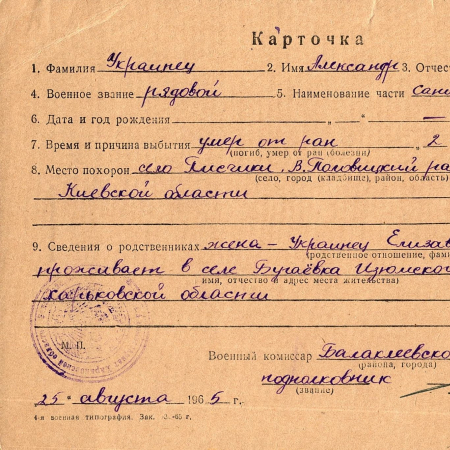 Карточка
1. Фамилия Украинец 2. Имя Александр 3. Отчест
4. Военное звание рядовой 5. Наименование части Сани
6. Дата и год рождения „ —
7. Время и причина выбытия умер от ран „ 2
(погиб, умер от ран (болезни)
8. Место похорон село Писчики, В.Половецкий ра
(село, город (кладбище), район, область)
Киевской области
9. Сведения о родственниках жена – Украинец Елизав
(родственное отношение, фами
проживает в селе Бугаёвка Изюмской
имя, отчество и адрес места жительства)
Харьковской области
М. П.
Военный комиссар Балаклеевско
(района, города)
подполковник
(звание)
25 августа 1965 г.
4-я военная типография. Зак. -65 г.